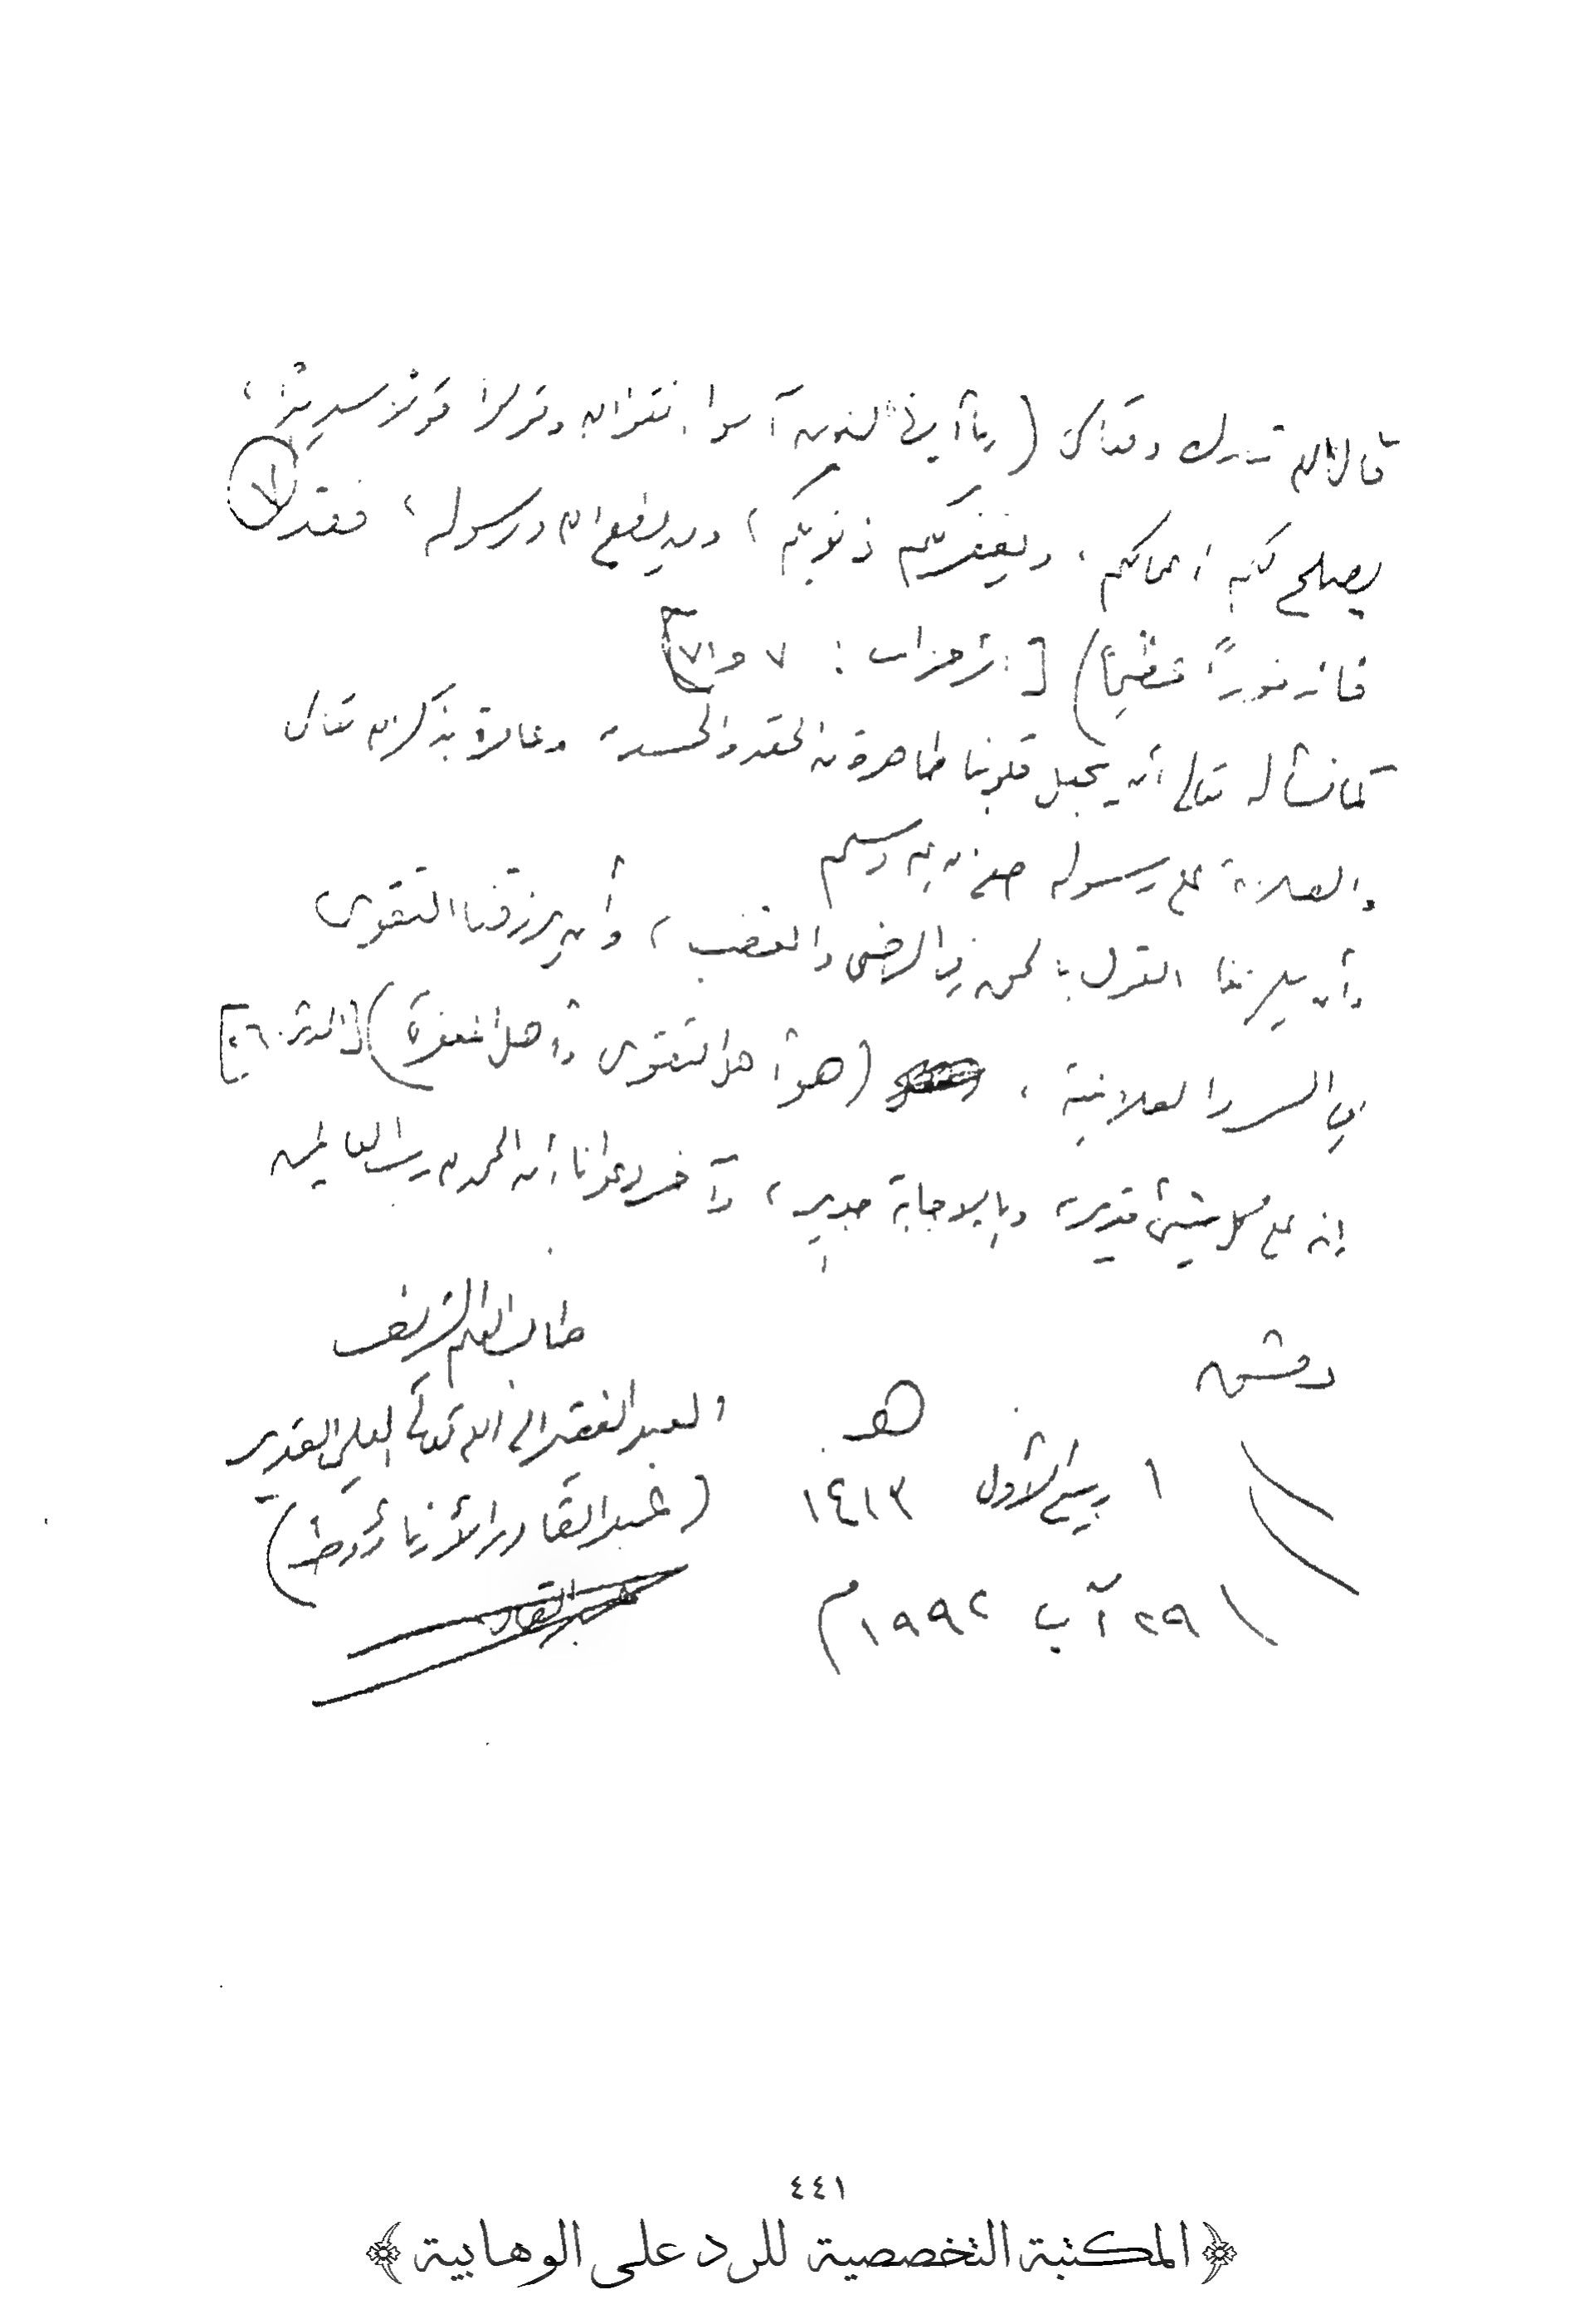 قال الله تبارك وتعالى (يا أيها الذين آمنوا اتقوا الله وقولوا قولاً سديداً،
يصلح لكم أعمالكم، ويغفر لكم ذنوبكم، ومن يطع الله ورسوله، فقد
فاز فوزاً عظيماً) [الأحزاب: ٧ و ٧١]
كما نسأله تعالى أن يجعل قلوبنا طاهرة من الحقد والحسد، وعامرة بذكر الله تعالى
والصلاة على رسوله صلى الله عليه وسلم
وأن يلهمنا القول بالحق في الرضى والغضب، وأن يرزقنا التقوى
في السر والعلانية، (هو أهل التقوى وأهل المغفرة) [المدثر:
إنه على كل شيء قدير، وبالإجابة جدير، وآخر دعوانا أن الحمد لله رب العالمين
طالب العلم الشريف
دمشق
العبد الفقير إلى الله تعالى العلي القدير
هـ
١ ربيع الأول ١٤١٣
(عبد القادر الأرناؤوط)
٢٩ آب ١٩٩٢ م
عبد القادر
٤٤١
﴿المكتبة التخصصية للرد على الوهابية﴾